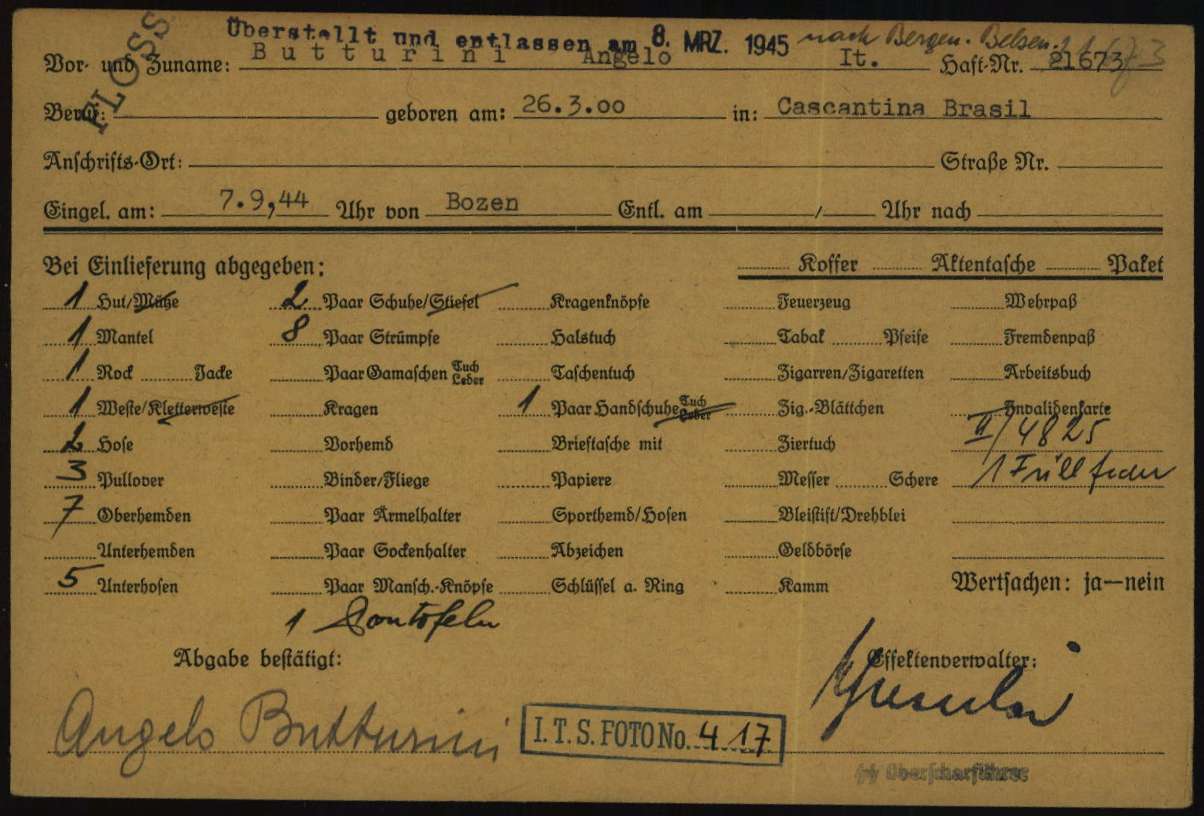 FLOSS
Überstellt und entlassen am 8. MRZ. 1945 nach Bergen-Belsen
Vor- und Zuname: Butturini Angelo It. Haft-Nr. 21673
Beruf: geboren am: 26.3.00 in: Cascantina Brasil
Anschrifts-Ort: Straße Nr.
Eingel. am: 7.9,44 Uhr von Bozen Entl. am / Uhr nach
Bei Einlieferung abgegeben: Koffer Aktentasche Paket
1 Hut/Mütze 2 Paar Schuhe/Stiefel Kragenknöpfe Feuerzeug Wehrpaß
1 Mantel 8 Paar Strümpfe Halstuch Tabak Pfeife Fremdenpaß
1 Rock Jacke Paar Gamaschen Tuch Leder Taschentuch Zigarren/Zigaretten Arbeitsbuch
1 Weste/Kletterweste Kragen 1 Paar Handschuhe Tuch Leder Zig.-Blättchen Invalidenkarte
2 Hose Vorhemd Brieftasche mit Ziertuch II/4825
3 Pullover Binder/Fliege Papiere Messer Schere 1 Füllfeder
7 Oberhemden Paar Ärmelhalter Sporthemd/Hosen Bleistift/Drehblei
Unterhemden Paar Sockenhalter Abzeichen Geldbörse
5 Unterhosen Paar Mansch.-Knöpfe Schlüssel a. Ring Kamm Wertsachen: ja—nein
1 Pantofeln
Abgabe bestätigt: Effektenverwalter:
Angelo Butturini
I.T.S. FOTO No. 417
Oberscharführer